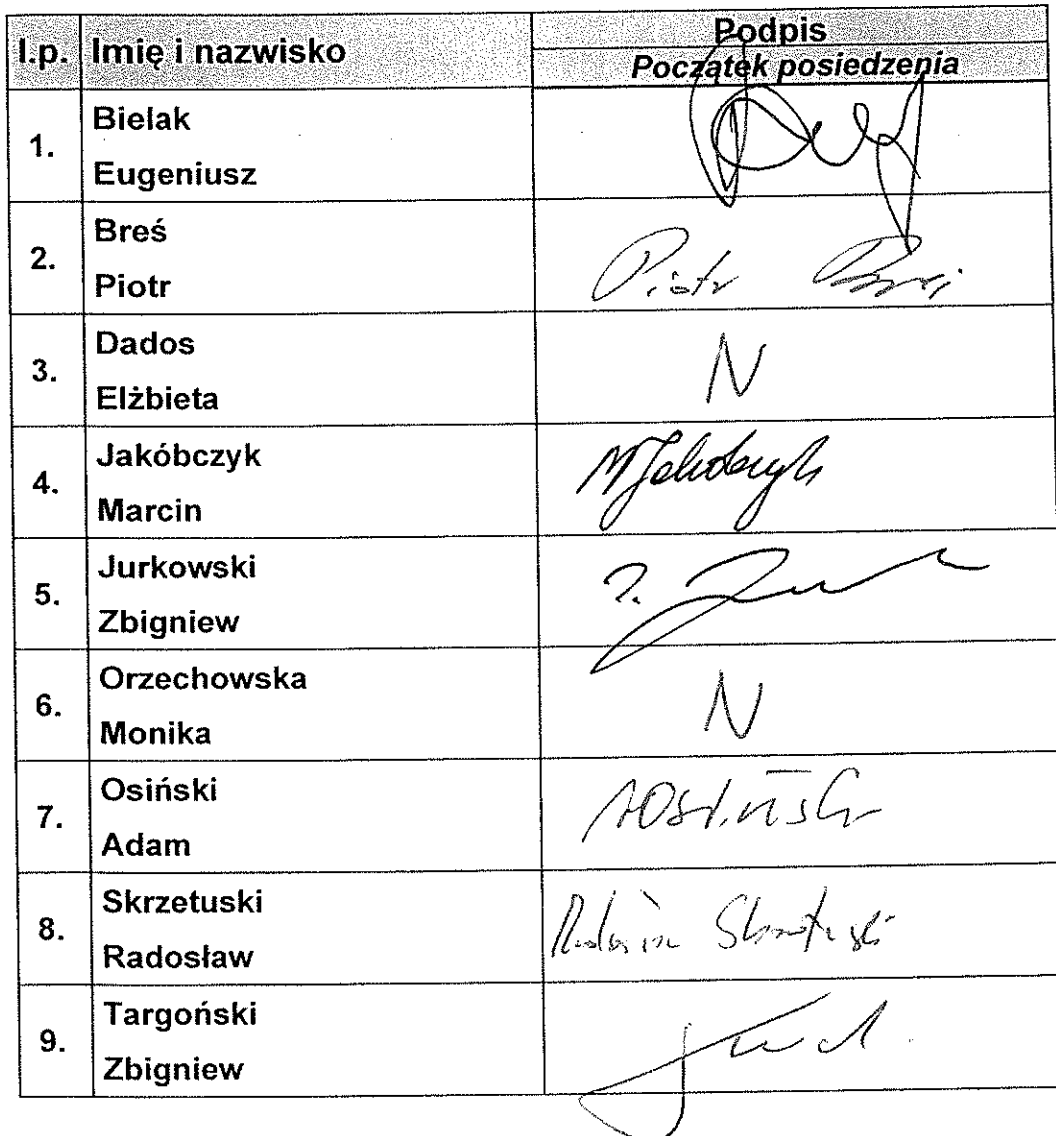 l.p. Imię i nazwisko Podpis
Początek posiedzenia
1. Bielak
Eugeniusz
2. Breś
Piotr
Piotr Breś
3. Dados
Elżbieta
N
4. Jakóbczyk
Marcin
MJakóbczyk
5. Jurkowski
Zbigniew
6. Orzechowska
Monika
N
7. Osiński
Adam
AOsiński
8. Skrzetuski
Radosław
Radosław Skrzetuski
9. Targoński
Zbigniew